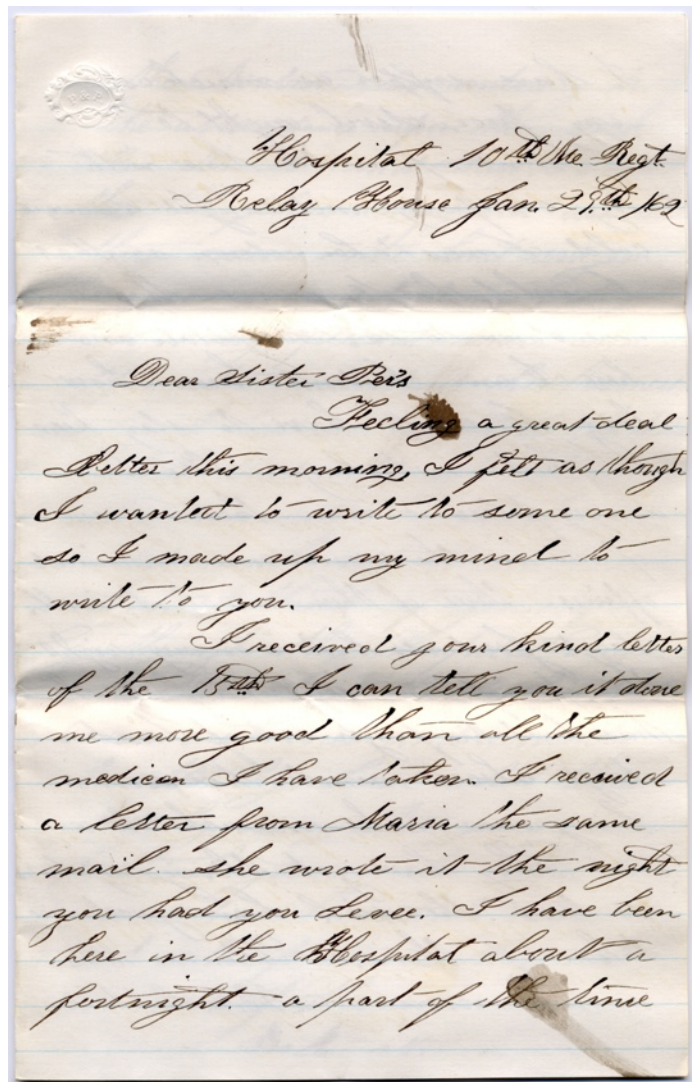 Hospital 10th Me. Regt.
Relay House Jan. 29th /62
Dear Sister Pers
Feeling a great deal
better this morning, I felt as though
I wanted to write to some one
so I made up my mind to
write to you.
I received your kind letter
of the 15th I can tell you it done
me more good than all the
medicen I have taken. I received
a letter from Maria the same
mail. she wrote it the night
you had you Levee. I have been
here in the Hospital about a
fortnight. a part of the time